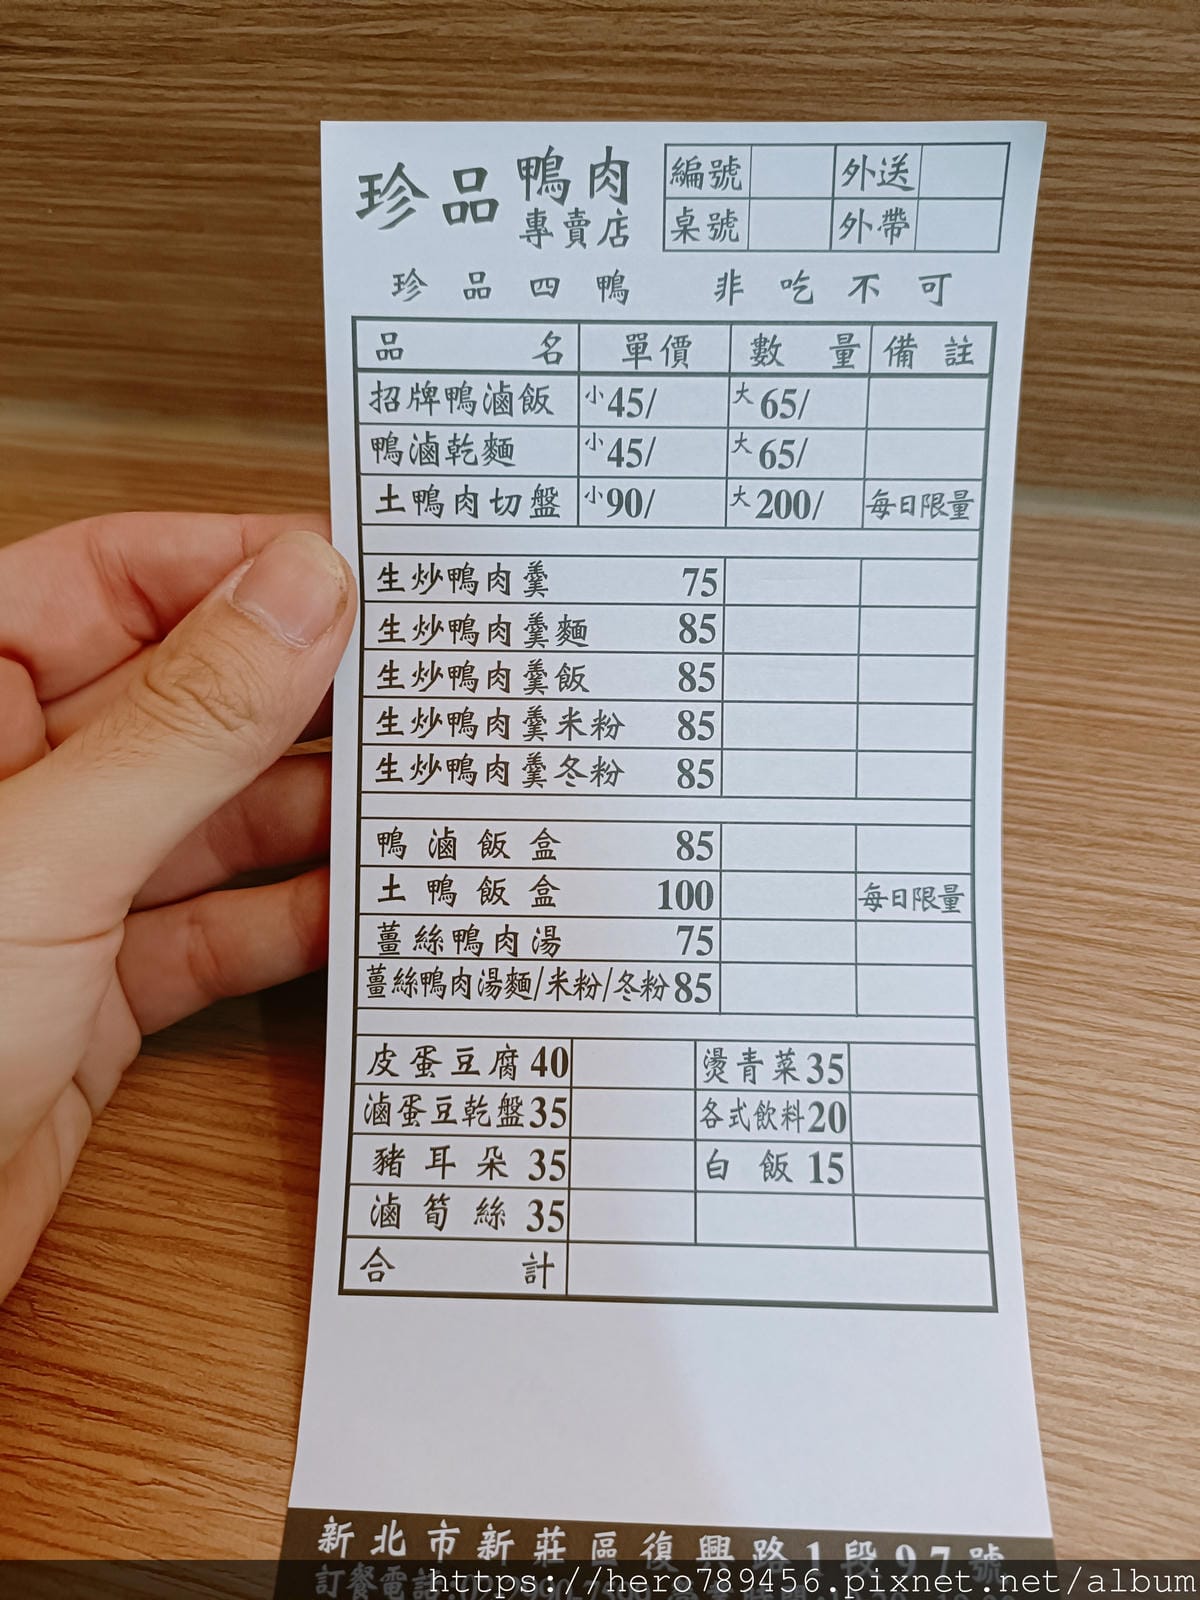 珍品 鴨肉
專賣店
編號 外送
桌號 外帶
珍品四鴨 非吃不可
品名 單價 數量 備註
招牌鴨滷飯 小45/ 大65/
鴨滷乾麵 小45/ 大65/
土鴨肉切盤 小90/ 大200/ 每日限量
生炒鴨肉羹 75
生炒鴨肉羹麵 85
生炒鴨肉羹飯 85
生炒鴨肉羹米粉 85
生炒鴨肉羹冬粉 85
鴨滷飯盒 85
土鴨飯盒 100 每日限量
薑絲鴨肉湯 75
薑絲鴨肉湯麵/米粉/冬粉 85
皮蛋豆腐 40 燙青菜 35
滷蛋豆乾盤 35 各式飲料 20
豬耳朵 35 白飯 15
滷筍絲 35
合計
新北市新莊區復興路1段97號
訂餐電話:
https://hero789456.pixnet.net/album